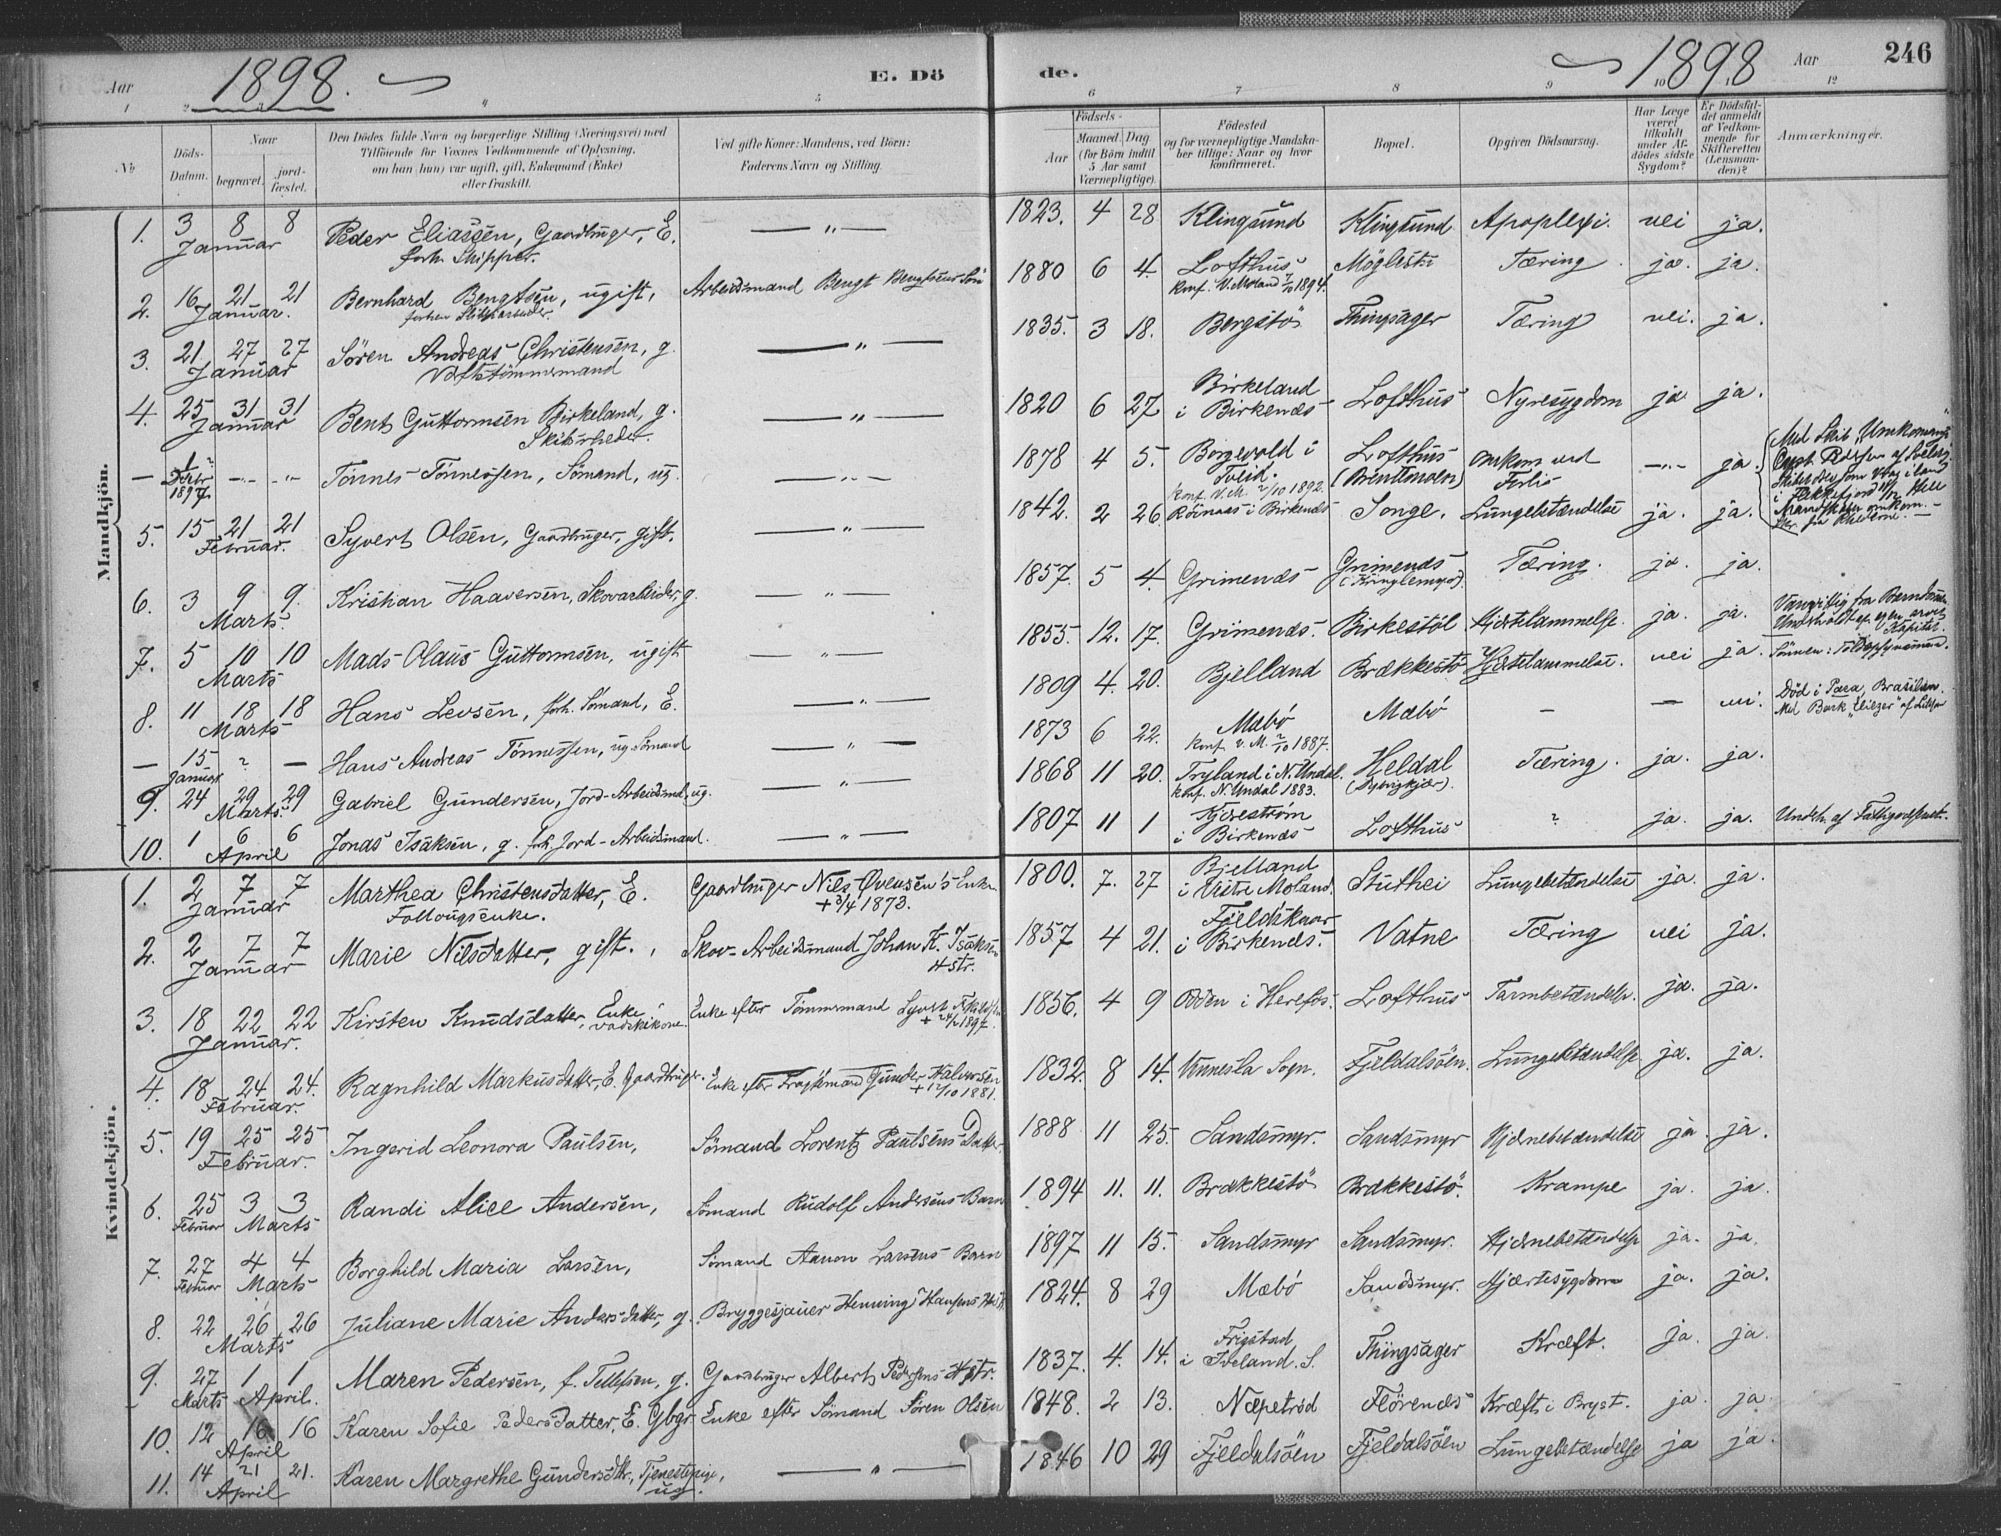 Aar 1898. E. Dö
de. 1898 Aar 246
1 2 3 4 5
6 7 8 9 10 11 12
No
Döds-Datum.
Naar
begravet.
jord-fæstet.
Den Dödes fulde Navn og borgerlige Stilling (Næringsvei) med
Tilföiende for Voxnes Vedkommende af Oplysning,
om han (hun) var ugift, gift, Enkemand (Enke)
eller fraskilt.
Ved gifte Koner: Mandens, ved Börn:
Faderens Navn og Stilling.
Födsels-
Aar
Maaned Dag
(for Börn indtil
5 Aar samt
Værnepligtige).
Födested
og for værnepligtige Mandska-
ber tillige: Naar og hvor
konfirmeret.
Bopæl.
Opgiven Dödsaarsag.
Har Læge
været
tilkaldt
under Af-
dödes sidste
Sygdom?
Er Dödsfal-
det anmeldt
af Vedkom-
mende for
Skifteretten
(Lensman-
den)?
Anmærkninger.
Mandkjön.
1. 3 8 8 Januar Peder Eliassen, Gaardbruger, E. forh. Skipper. — " — 1823. 4 28 Klingsund Klingsund Apoplexi. nei ja.
2. 16 21 21 Januar. Bernhard Bengtsen, ugift, forhen Arbeidsmand Bengt Bengtsens Sön 1880 6 4. Lofthus konf. V. Moland 7/10 1894. Möglestu Tæring ja. ja.
3. 21 27 27 Januar Sören Andreas Christensen, g. Verftstömmermand — " — 1835. 3 18. Bergstö Thingsager Tæring nei. ja.
4. 25 31 31 Januar Bent Guttormsen Birkeland, g. — " — 1820 6 27 Birkeland i Birkenæs Lofthus Nyresygdom ja ja.
— Decbr 1897. -"- -"- Tönnes Tönnessen, Sömand, ug. — " — 1878 4 5. i Tveid. konf. V.M. 2/10 1892. Lofthus omkom ved Forlis —"— ja. Med Skib
5. 15 21 21 Februar. Syvert Olsen, Gaardbruger, gift. — " — 1842. 2 26 i Birkenæs Songe. Lungebetændelse ja. ja.
6. 3 9 9. Marts. Kristian Haaversen, Skovarbeider, g. — " — 1857. 5 4. Grimenæs Grimenæs Tæring. ja. ja.
7. 5 10 10 Marts Mads Olaus Guttormsen, ugift — " — 1855. 12. 17. Grimenæs. Birkestöl Hjertelammelse. ja. ja. Vanvittig fra Barndommen Underholdt af egen arvet Kapital.
8. 11 18 18 Marts Hans Levsen, forh. Sömand, E. — " — 1809 4. 20. Bjelland Brækkestö Hjertelammelse. nei ja. Sönnen:
— 15 Januar ? — Hans Andreas Tönnessen, ug. Sömand — " — 1873 6 22. Mæbö konf. V.M. 2/10 1887. Mæbö — — nei. Död i Para, Brasilien. Med Bark "Eliezer" af Lillesand
9. 24 29 29 Marts. Gabriel Gundersen, Jord-Arbeidsmd, ug. — " — 1868 11 20. Tryland i N. Undal. konf. N. Undal 1883. Heldal Tæring. ja. ja.
10. 1 6 6 April Jonas Isaksen, g. forh. Jord-Arbeidsmand. — " — 1807 11 1 i Birkenæs Lofthus ? ja. ja. Underh. af Fattigvæsenet.
Kvindekjön.
1. 2 7 7 Januar Marthea Christensdatter, E. Follougsenke. Gaardbruger Nils Övensen's Enke + 3/4 1873. 1800. 7. 27 Bjelland i Vestre Moland. Stuthei Lungebetændelse ja. ja.
2. 2 7 7 Januar Marie Nilsdatter, gift. Skov-Arbeidsmand Johan K. Isaksens Hstr. 1857 4 21. Fjeldskaar i Birkenæs. Vatne Tæring nei ja.
3. 18 22 22 Januar. Kirsten Knudsdatter, Enke Enke efter Tömmermand Syvert 1897. 1856. 4 9 Odden i Herefos. Lofthus Tarmbetændelse. ja. ja.
4. 18 24 24. Februar. Ragnhild Markusdatter, E. Gaardbruger. Enke efter Gunder Halvorsen + 12/10 1881. 1832. 8 14. Vennesla Sogn. Fjeldalsöen. Lungebetændelse ja. ja.
5. 19 25 25 Februar. Ingerid Leonora Paulsen, Sömand Lorentz Paulsens Datter. 1888 11 25. Sandsmyr. Sandsmyr Hjernebetændelse ja ja.
6. 25 3 3 Februar Marts Randi Alice Andersen, Sömand Rudolf Andersens Barn 1894 11. 11. Brækkestö Brækkestö. Krampe ja. ja.
7. 27 4 4 Februar Marts Borghild Maria Larsen, Sömand Aanon Larsens Barn 1897 11 15. Sandsmyr Sandsmyr. Hjernebetændelse ja. ja.
8. 22 26 26 Marts Juliane Marie Andersdatter, g. Bryggesjauer Henning Hansens 1824. 8 29 Mæbö Sandsmyr. Hjertesygdom ja. ja.
9. 27 1 1 Marts April. Maren Pedersen, f. Tellefsen, g. Gaardbruger Albert Pedersens Hstr. 1837. 4. 14. Frigstad i Iveland. S. Thingsager Kræft. ja. ja.
10. 12 16 16 April Karen Sofie Pedersdatter, E. Gbgr. Enke efter Sömand Sören Olsen 1848. 2 13. Næpetröd Flörenæs Kræft i Bryst. ja ja.
11. 14 21 21. April Karen Margrethe Gundersdtr., Tjenestepige, ug. — " — 1846 10 29 Fjeldalsöen Fjeldalsöen Lungebetændelse ja ja.